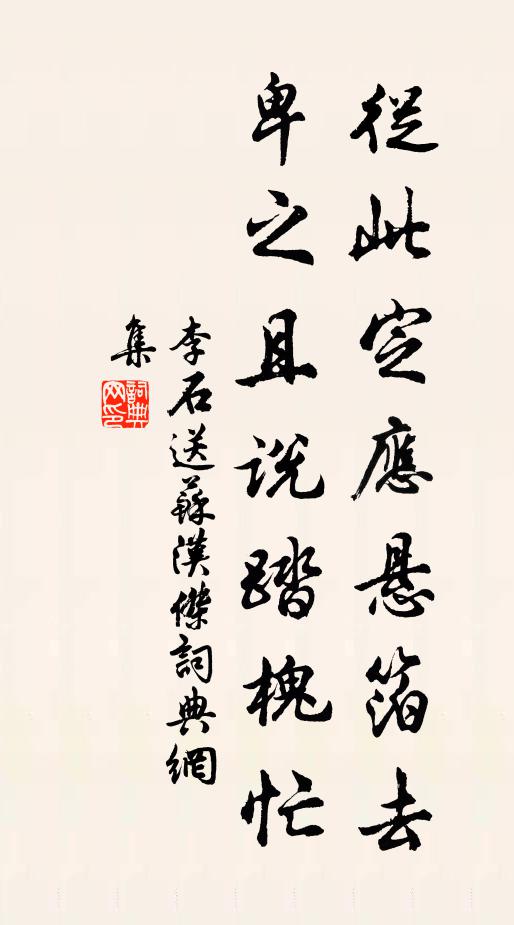 從此定應懸箔去
卑之且説踏槐忙
李石送蘇漢傑詞典網
集
詞典網印